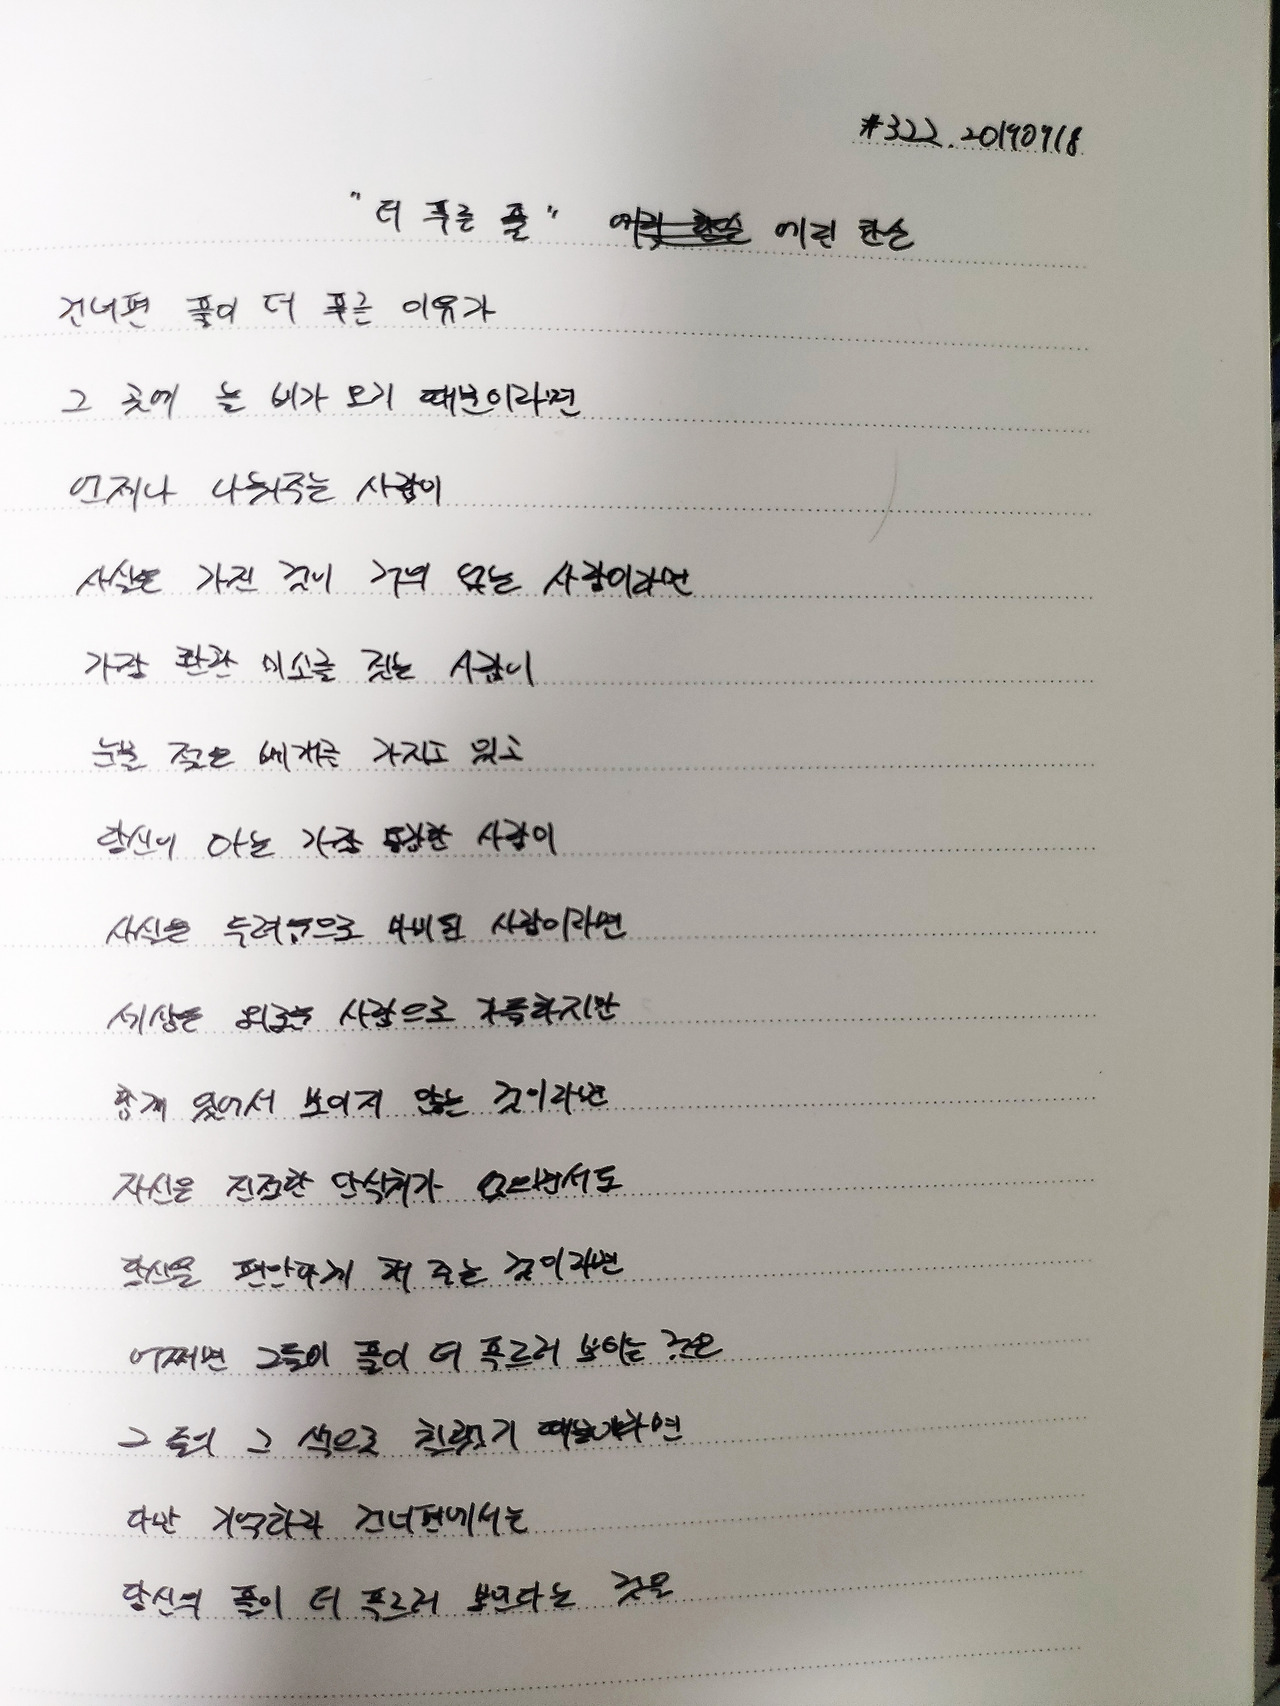 #322. 20190918
"더 푸른 풀" 에린 한슨
건너편 풀이 더 푸른 이유가
그 곳에 늘 비가 오기 때문이라면
언제나 나눠주는 사람이
사실은 가진 것이 거의 없는 사람이라면
가장 환한 미소를 짓는 사람이
눈물 젖은 베개를 가지고 있고
당신이 아는 가장 용감한 사람이
사실은 두려움으로 마비된 사람이라면
세상은 외로운 사람으로 가득하지만
함께 있어서 보이지 않는 것이라면
자신은 진정한 안식처가 없으면서도
당신을 편안하게 해 주는 것이라면
어쩌면 그들의 풀이 더 푸르러 보이는 것은
그들의 그 색으로 칠했기 때문이라면
다만 기억하라 건너편에서는
당신의 풀이 더 푸르러 보인다는 것을